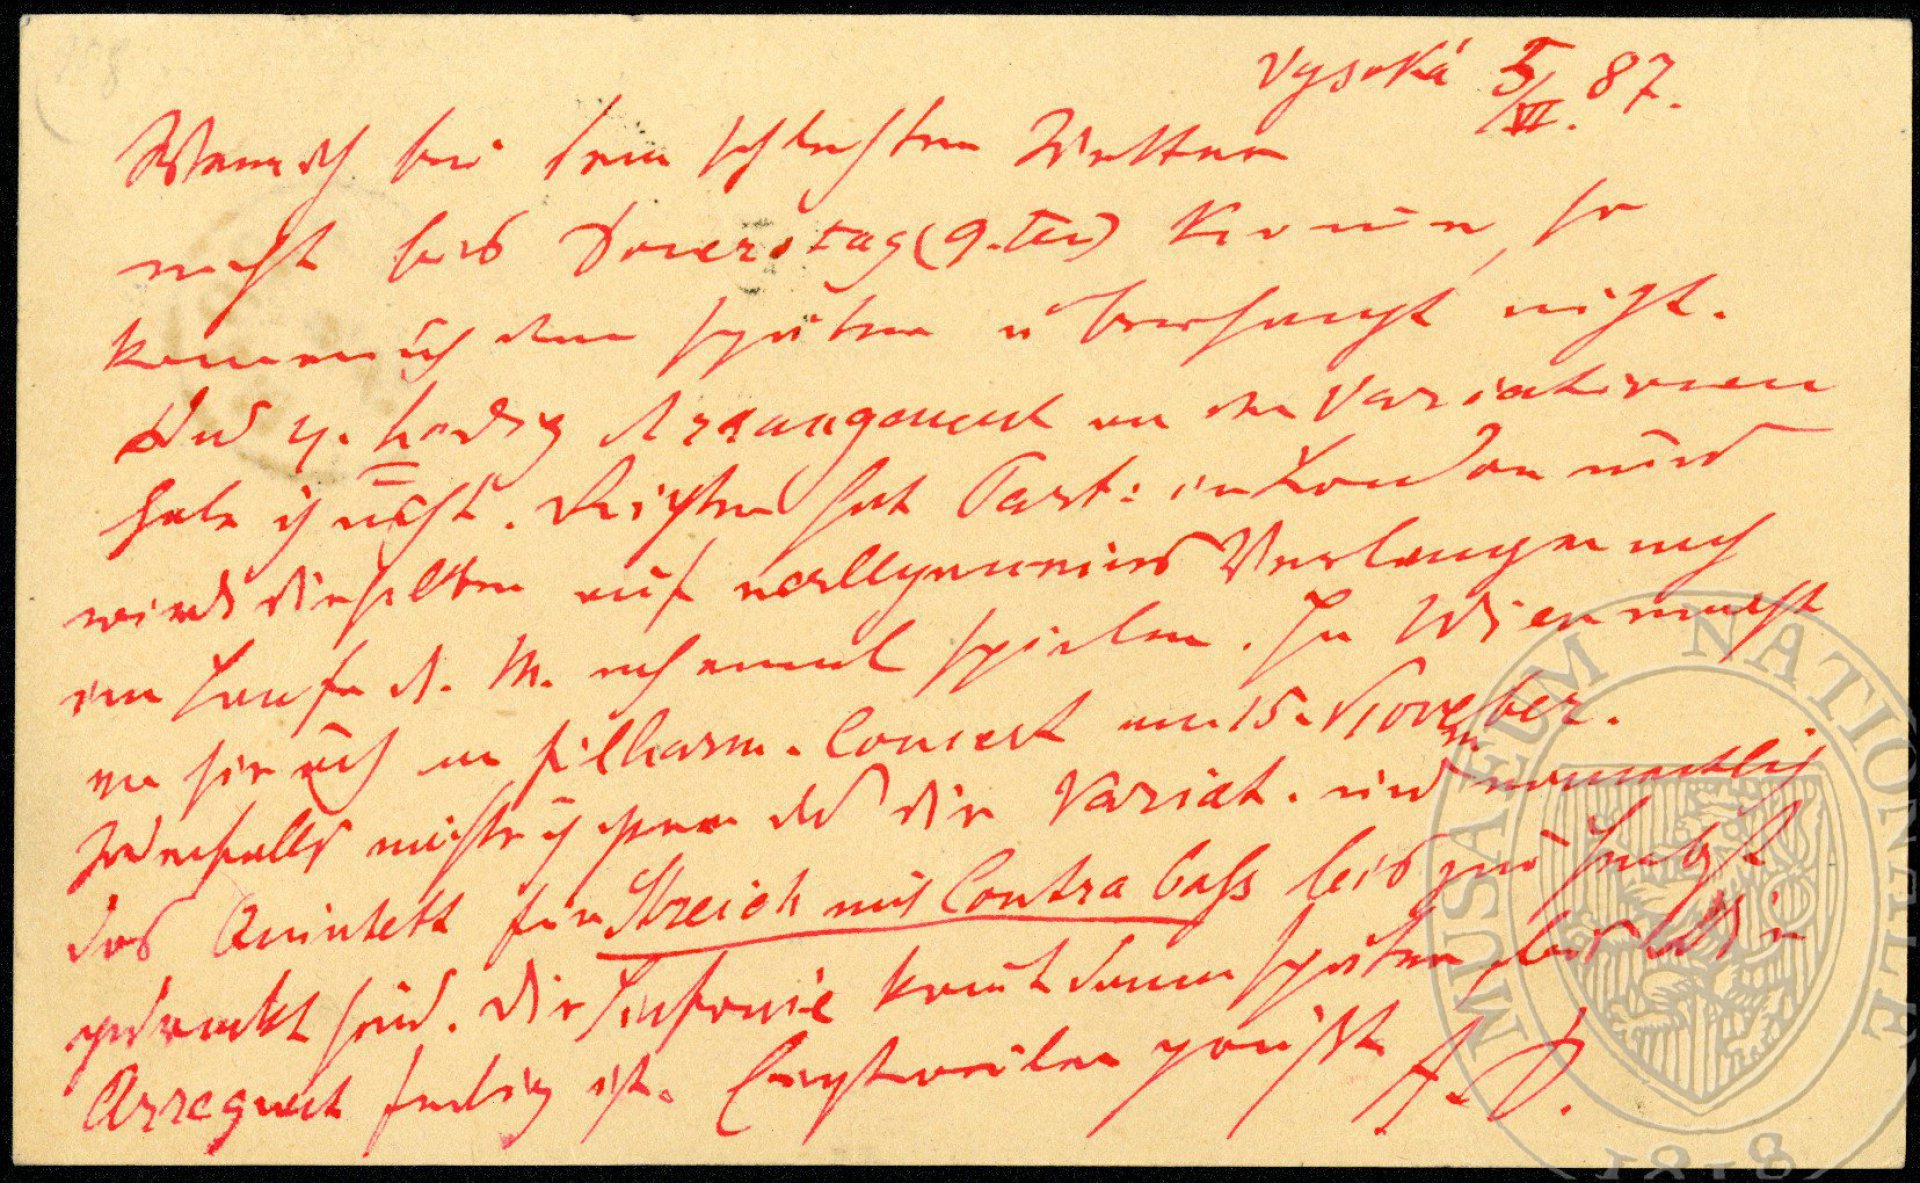 Vysoká 5/VI. 87.
Wenn ich bei dem schlechten Wetter
nicht bis Donerstag (9. ) kome, so
komme ich dann später überhaupt nicht.
Das 4. händig Arrangement von den Variationen
habe ich nicht. Richter hat Part: in London und
wird dieselben auf allgemeines Verlangen noch
im Laufe d. M. noch einmal spielen. In Wien macht
er sie auch im filharm. Concert am 15. November.
Jedenfalls möchte ich gern daß die Variat. und namentlich
das Quintett für Streich mit Contrabaß bis zum Herbst
gedruckt sind. Die Sinfonie komt dann später, bis das
Arragment fertig ist. Einstweilen grüßt
A. D.
MUSAEUM NATIONALE
1818